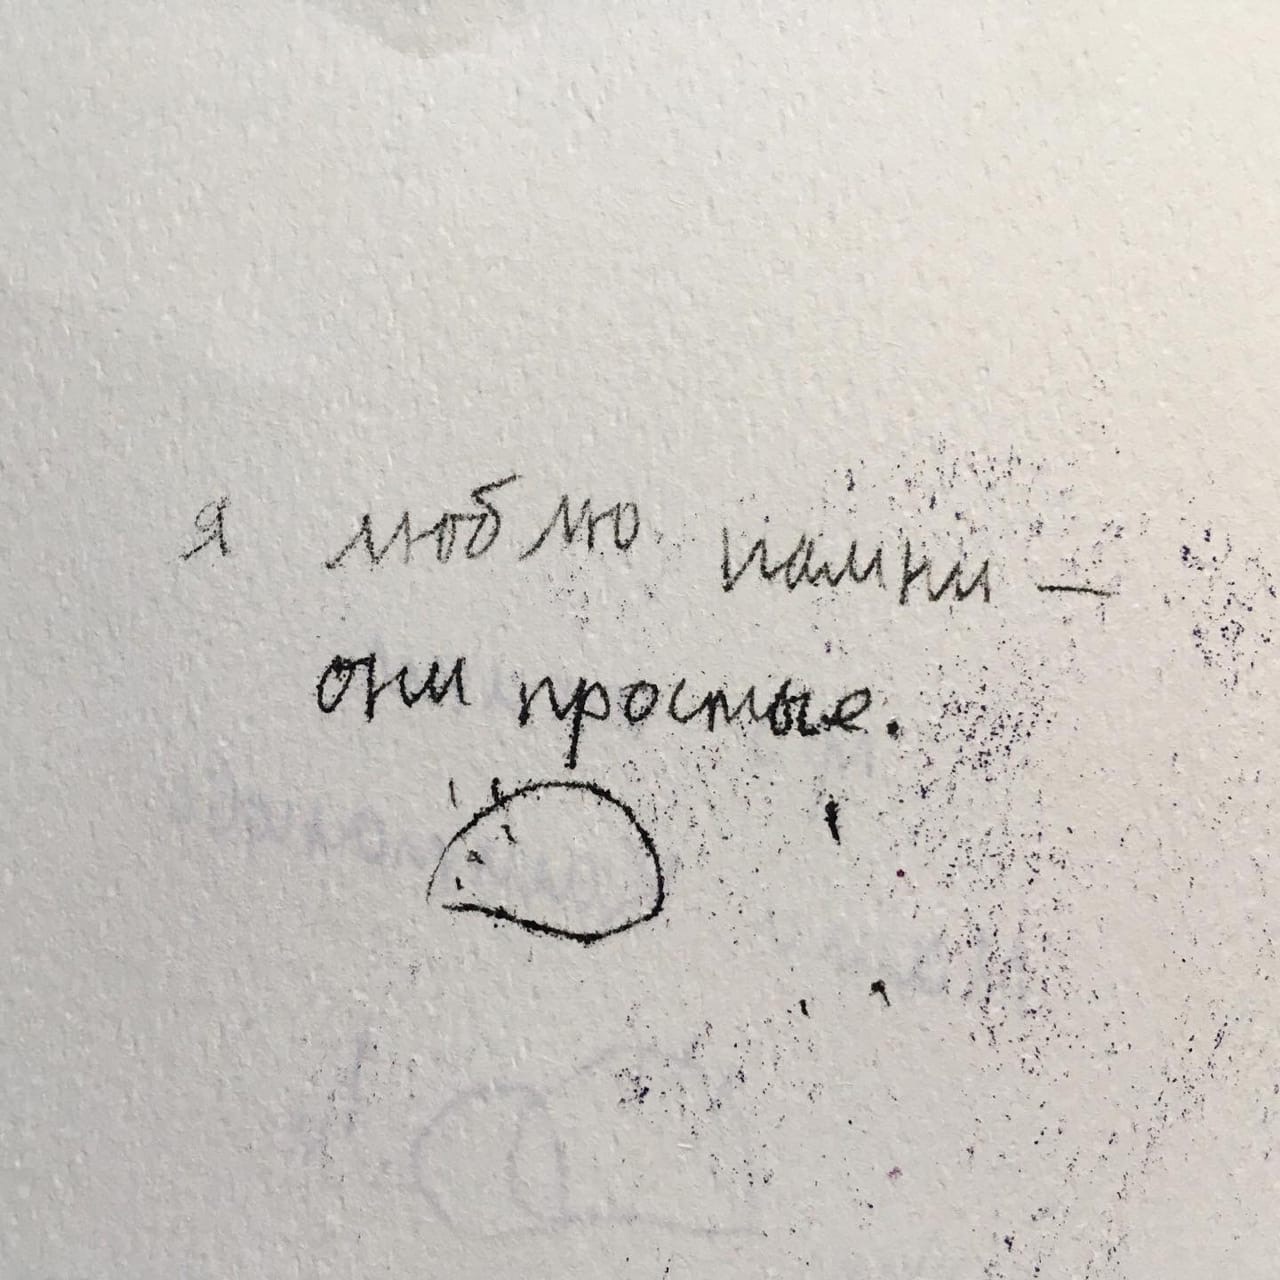 я люблю камни —
они простые.